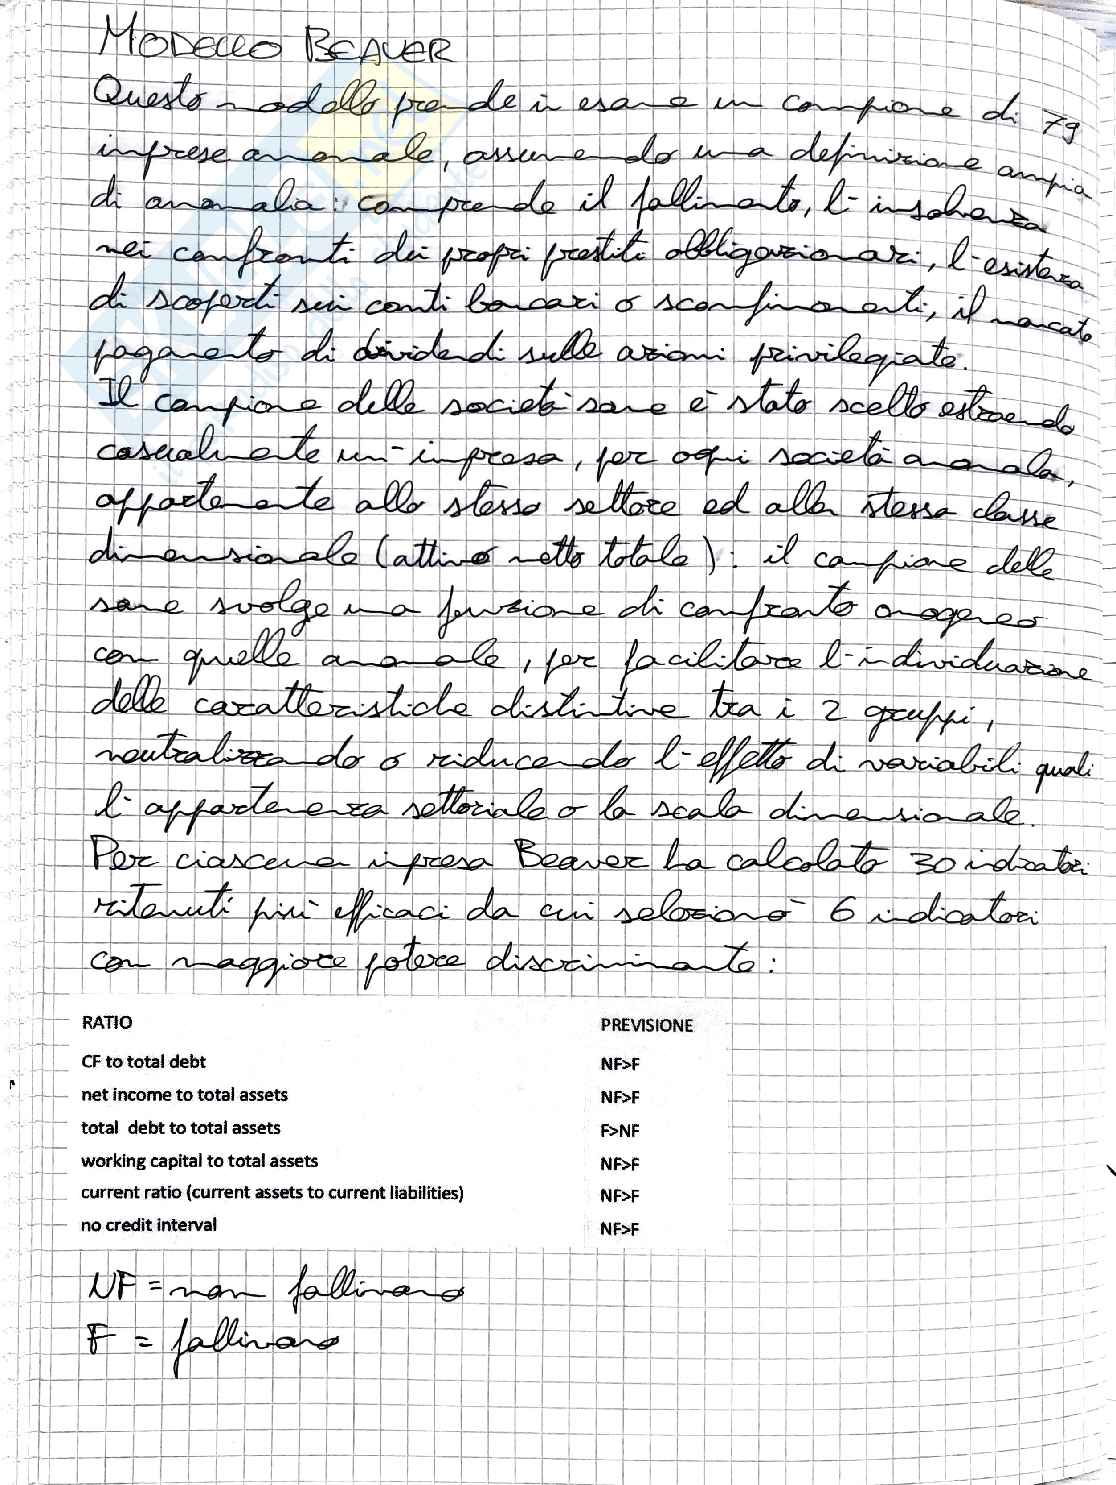 MODELLO BEAVER
Questo modello prende in esame un campione di 79
imprese anomale, assumendo una definizione ampia
di anomalia: comprende il fallimento, l'insolvenza
nei confronti dei propri prestiti obbligazionari, l'esistenza
di scoperti sui conti bancari o sconfinamenti, il mancato
pagamento di dividendi sulle azioni privilegiate.
Il campione delle società sane è stato scelto estraendo
casualmente un'impresa, per ogni società anomala,
appartenente allo stesso settore ed alla stessa classe
dimensionale (attivo netto totale): il campione delle
sane svolge una funzione di confronto omogeneo
con quelle anomale, per facilitare l'individuazione
delle caratteristiche distintive tra i 2 gruppi,
neutralizzando o riducendo l'effetto di variabili quali
l'appartenenza settoriale o la scala dimensionale.
Per ciascuna impresa Beaver ha calcolato 30 indicatori
ritenuti più efficaci da cui selezionò 6 indicatori
con maggiore potere discriminante:
RATIO PREVISIONE
CF to total debt NF>F
net income to total assets NF>F
total debt to total assets F>NF
working capital to total assets NF>F
current ratio (current assets to current liabilities) NF>F
no credit interval NF>F
NF = non fallivano
F = fallivano